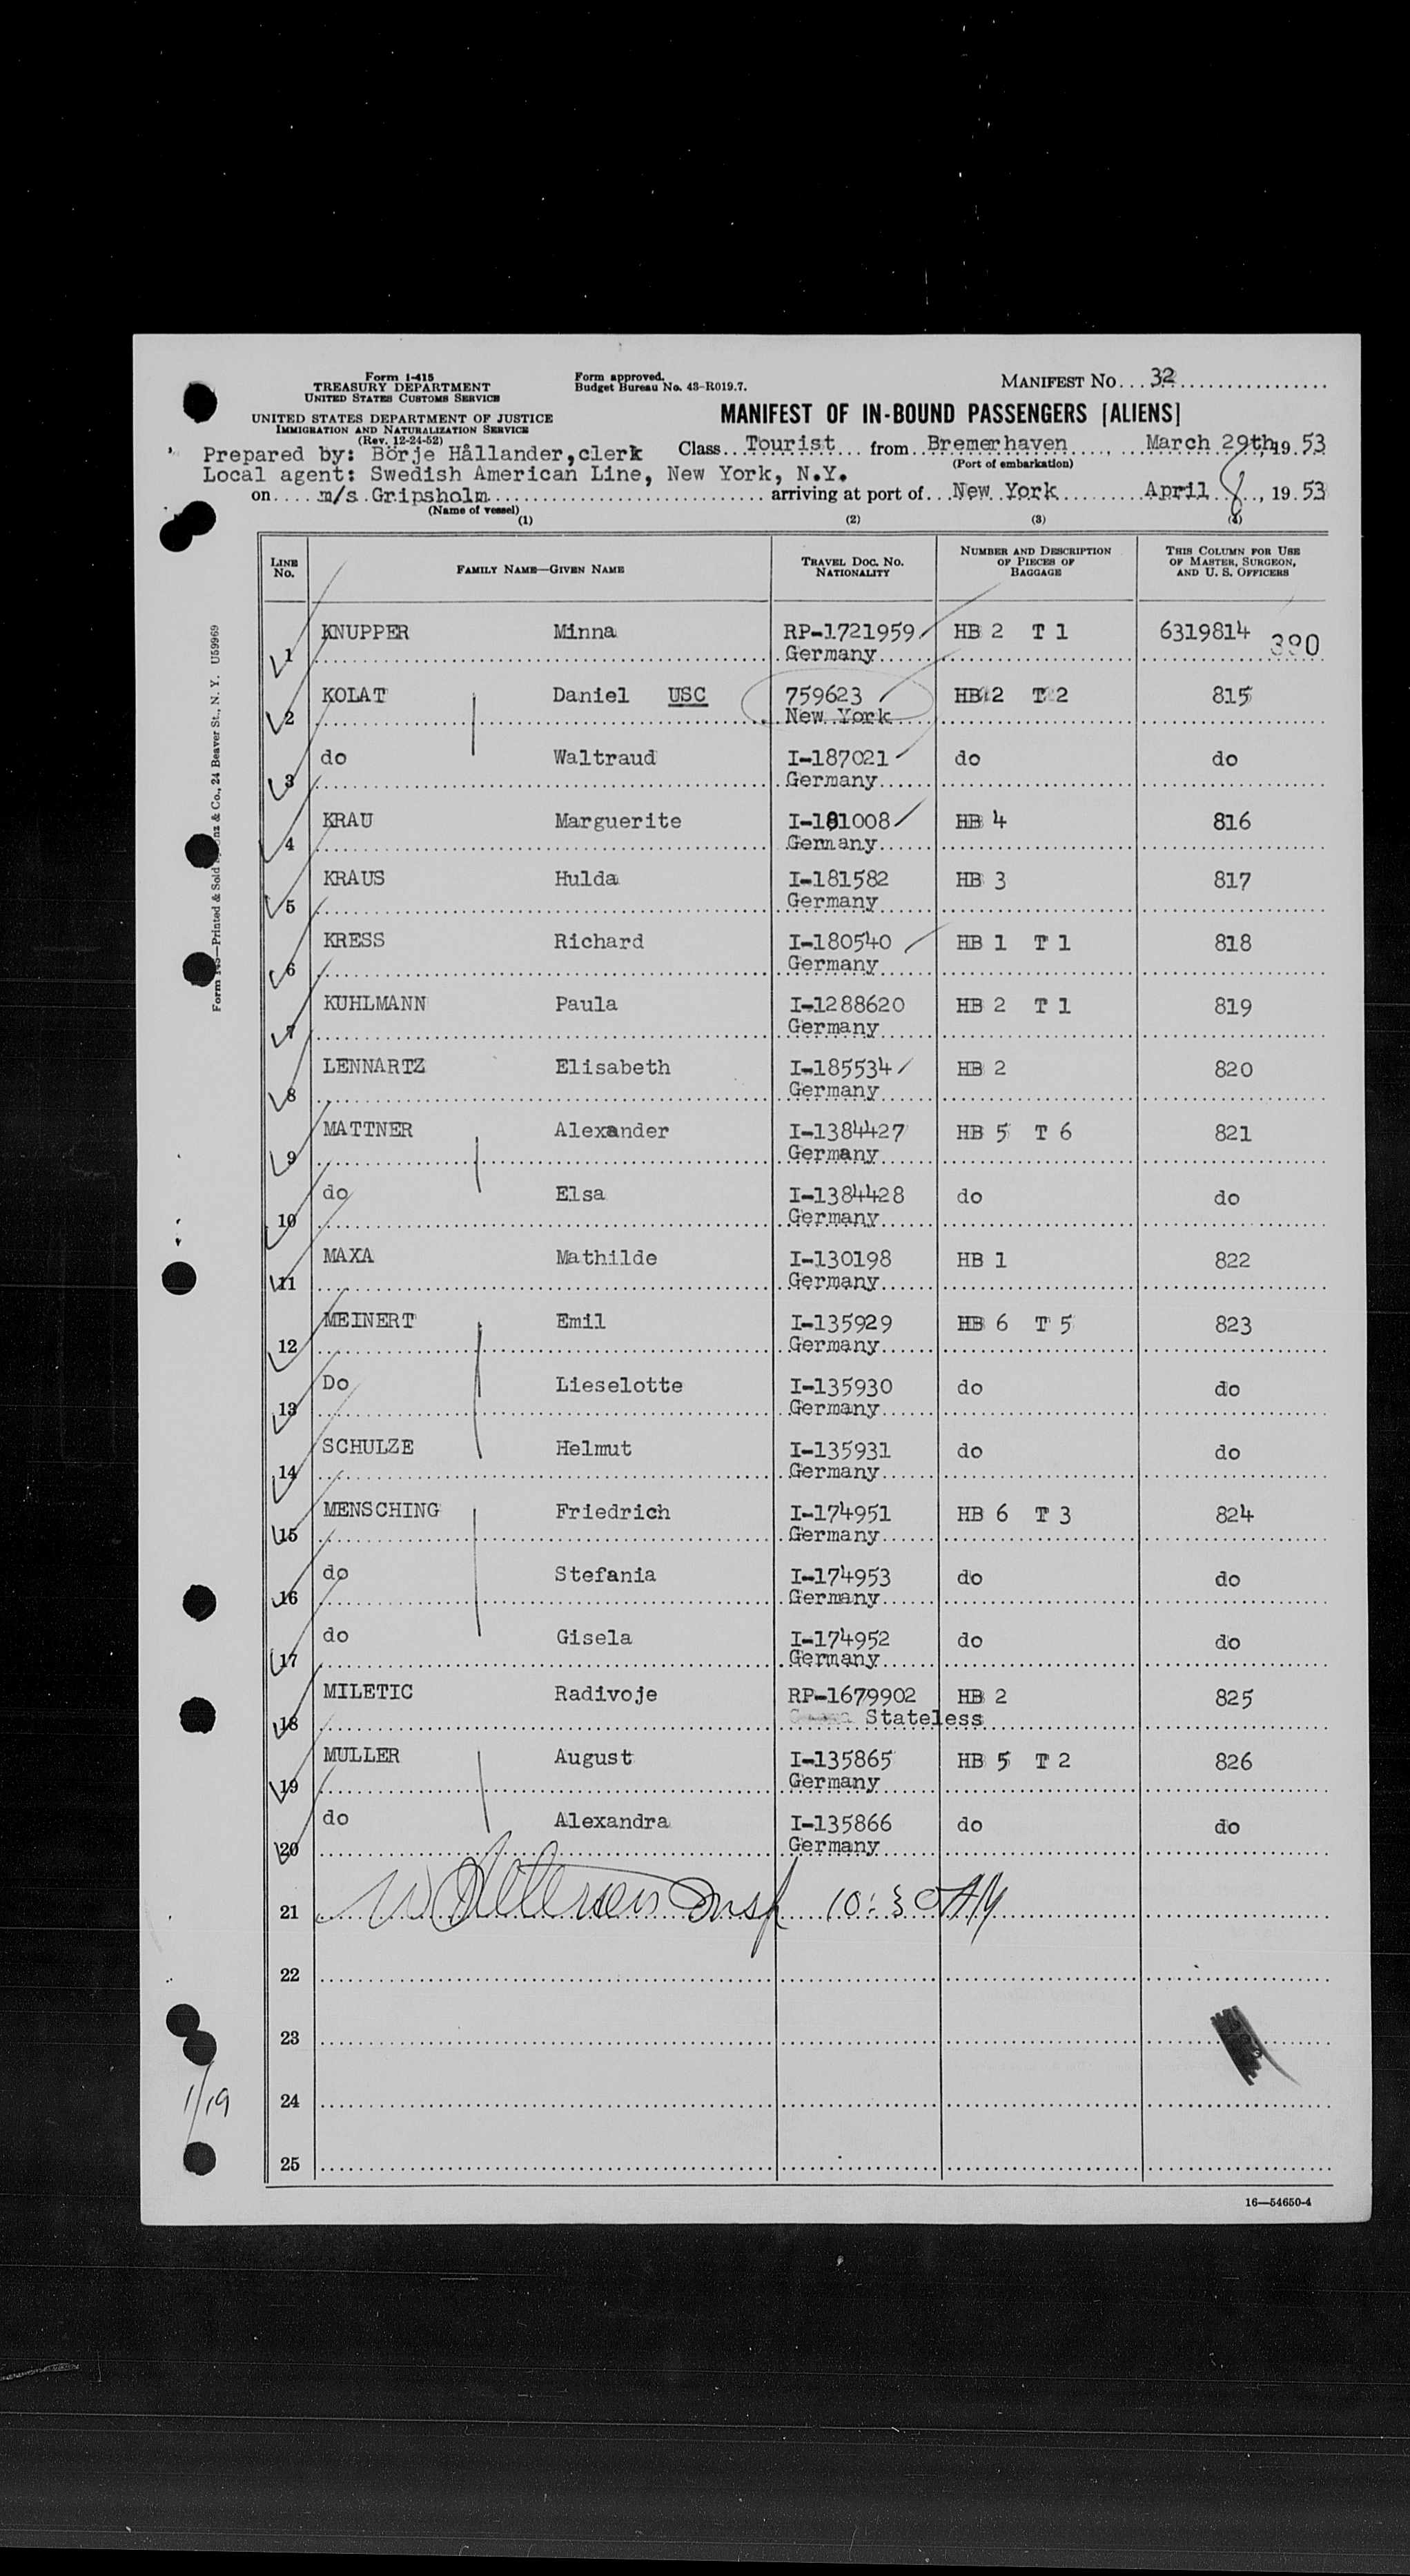 Form I-415
TREASURY DEPARTMENT
UNITED STATES CUSTOMS SERVICE
Form approved.
Budget Bureau No. 43-R019.7.
MANIFEST NO. 32
UNITED STATES DEPARTMENT OF JUSTICE
IMMIGRATION AND NATURALIZATION SERVICE
(Rev. 12-24-52)
MANIFEST OF IN-BOUND PASSENGERS [ALIENS]
Prepared by: Börje Hållander,clerk Class Tourist from Bremerhaven, March 29th, 19 53
(Port of embarkation)
Local agent: Swedish American Line, New York, N.Y.
on m/s Gripsholm arriving at port of New York April 8, 19 53
(Name of vessel)
(1) (2) (3) (4)
LINE NO. FAMILY NAME—GIVEN NAME TRAVEL DOC. NO. NATIONALITY NUMBER AND DESCRIPTION OF PIECES OF BAGGAGE THIS COLUMN FOR USE OF MASTER, SURGEON, AND U. S. OFFICERS
1 KNUPPER Minna RP-1721959 HB 2 T 1 6319814 390
Germany
2 KOLAT Daniel USC 759623 HB 2 T 2 815
New York
3 do Waltraud I-187021 do do
Germany
4 KRAU Marguerite I-181008 HB 4 816
Germany
5 KRAUS Hulda I-181582 HB 3 817
Germany
6 KRESS Richard I-180540 HB 1 T 1 818
Germany
7 KUHLMANN Paula I-1288620 HB 2 T 1 819
Germany
8 LENNARTZ Elisabeth I-185534 HB 2 820
Germany
9 MATTNER Alexander I-1384427 HB 5 T 6 821
Germany
10 do Elsa I-1384428 do do
Germany
11 MAXA Mathilde I-130198 HB 1 822
Germany
12 MEINERT Emil I-135929 HB 6 T 5 823
Germany
13 Do Lieselotte I-135930 do do
Germany
14 SCHULZE Helmut I-135931 do do
Germany
15 MENSCHING Friedrich I-174951 HB 6 T 3 824
Germany
16 do Stefania I-174953 do do
Germany
17 do Gisela I-174952 do do
Germany
18 MILETIC Radivoje RP-1679902 HB 2 825
Stateless
19 MULLER August I-135865 HB 5 T 2 826
Germany
20 do Alexandra I-135866 do do
Germany
21 Insp 10:30 AM
22
23
24
25
1/19
16—54650-4
Printed & Sold & Co., 24 Beaver St., N. Y. U59969